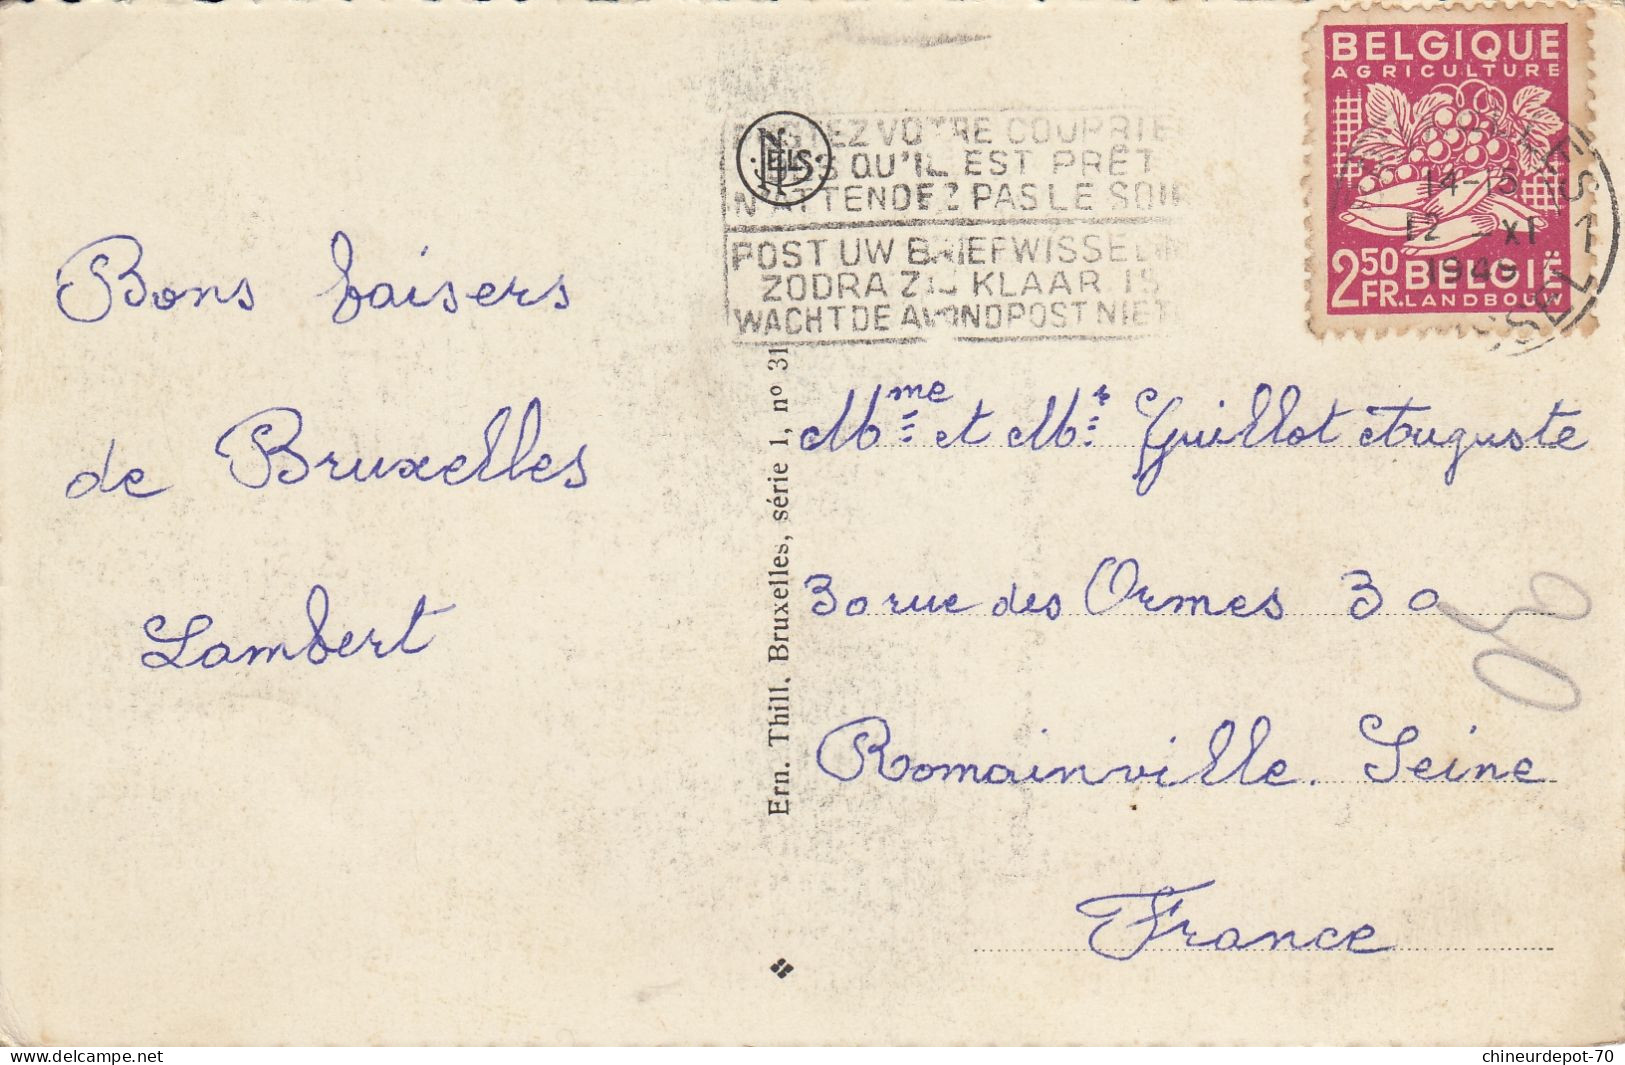 BELGIQUE
AGRICULTURE
2.50 FR. BELGIË
LANDBOUW
14-15
12 - XI
1949
1
NELS
VOTRE COURRIER
DES QU'IL EST PRÊT
N'ATTENDEZ PAS LE SOIR
POST UW BRIEFWISSELING
ZODRA ZIJ KLAAR IS
WACHT DE AVONDPOST NIET
Bons baisers
de Bruxelles
Lambert
Ern. Thill. Bruxelles, série 1, nº 31
Mme et Mr Guillot Auguste
30 rue des Ormes 30
Romainville. Seine
France
delcampe.net
chineurdepot-70